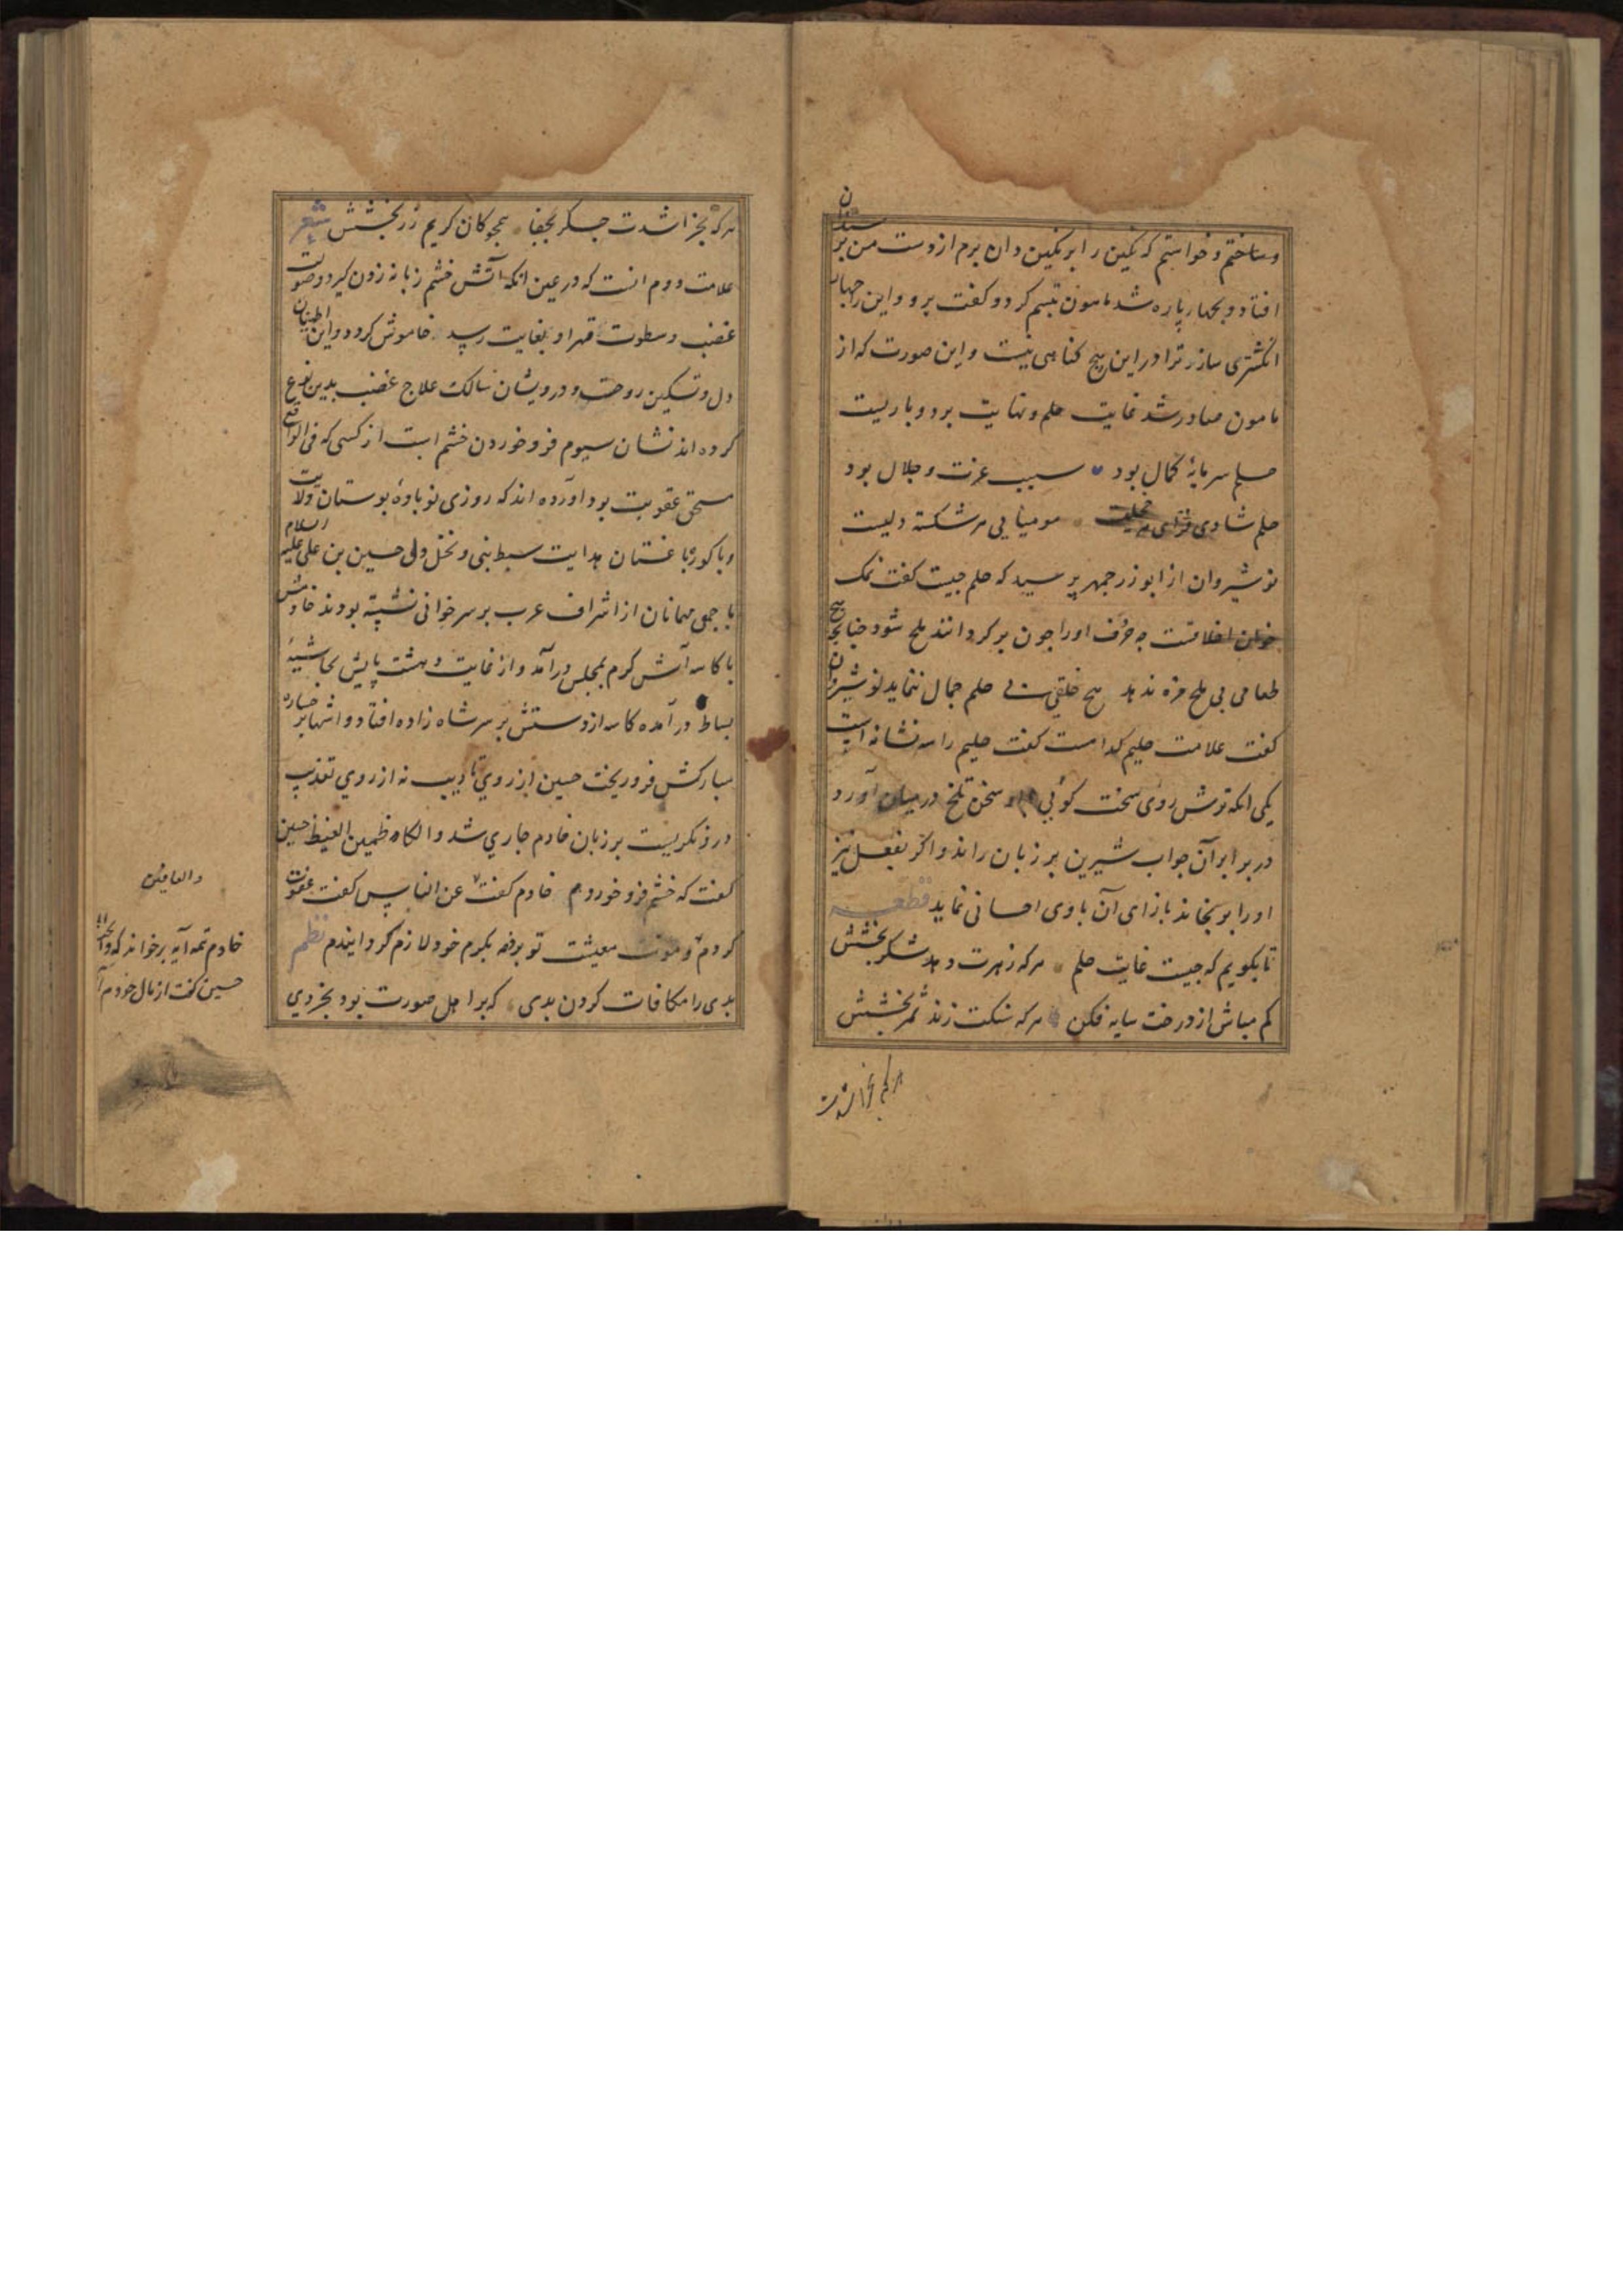 وساختم و خواستم که نگین را بر نگین دان برم از دست من بر سندان
افتاد و بچهار پاره شد مامون تبسم کرد و گفت برو و این را چهار
انگشتری ساز ترا در این هیچ گناهی نیست و این صورت که از
مامون صادر شد غایت حلم و نهایت بردباریست
حلم سرمایهٔ کمال بود سبب عزت و جلال بود
حلم شادی فزای هر مومیایی هر شکسته دلیست
نوشیروان از ابوزرجمهر پرسید که حلم چیست گفت نمک
خوان اخلاقست چه حرف او را چون برگردانند ملح شود چنانچه هیچ
طعامی بی ملح مزه ندهد هیچ خلقی بی حلم جمال ننماید نوشیروان
گفت علامت حلیم کدامست گفت حلیم را سه نشانه است
یکی آنکه ترش روی سخت گوئی او سخن تلخ در میان آورد
در برابر آن جواب شیرین بر زبان راند و اگر بفعل نیز
او را برنجاند بازای آن با وی احسانی نماید قطعه
تا بگویم که چیست غایت حلم هر که زهرت دهد شکر بخشش
کم مباش از درخت سایه فکن هر که سنگت زند ثمر بخشش
هرکه بخراشدت
هرکه بخراشدت جگر بجفا همچو کان کریم زر بخشش شعر
علامت دوم انست که در عین انکه آتش خشم زبانه زدن گیرد و صولت
غضب و سطوت قهر او بغایت رسد خاموش گردد و این اطمینان
دل و تسکین روحست و درویشان سالک علاج غضب بدین نوع
کرده اند نشان سیوم فرو خوردن خشم است از کسی که فی الواقع
مستحق عقوبت بود آورده اند که روزی نوباوهٔ بوستان ولایت
و باکورهٔ باغستان هدایت سبط نبی و نخل ولی حسین بن علی علیه السلام
با جمعی مهمانان از اشراف عرب بر سر خوانی نشسته بودند خادمش
با کاسه آش گرم بمجلس درآمد و از غایت دهشت پایش بحاشیهٔ
بساط درآمده کاسه از دستش بر سر شاه زاده افتاد و اشها بر رخساره
مبارکش فرو ریخت حسین از روی تادیب نه از روی تعذیب
درو نگریست بر زبان خادم جاری شد والکاظمین الغیظ حسین
گفت که خشم فرو خوردم خادم گفت عن الناس گفت عفوت
کردم و مونت معیشت تو بر ذمه کرم خود لازم گردانیدم نظم
بدی را مکافات کردن بدی که بر اهل صورت بود بخردی
والعافین
خادم تمه آیه برخواند که والله یحب
حسین گفت از مال خودم